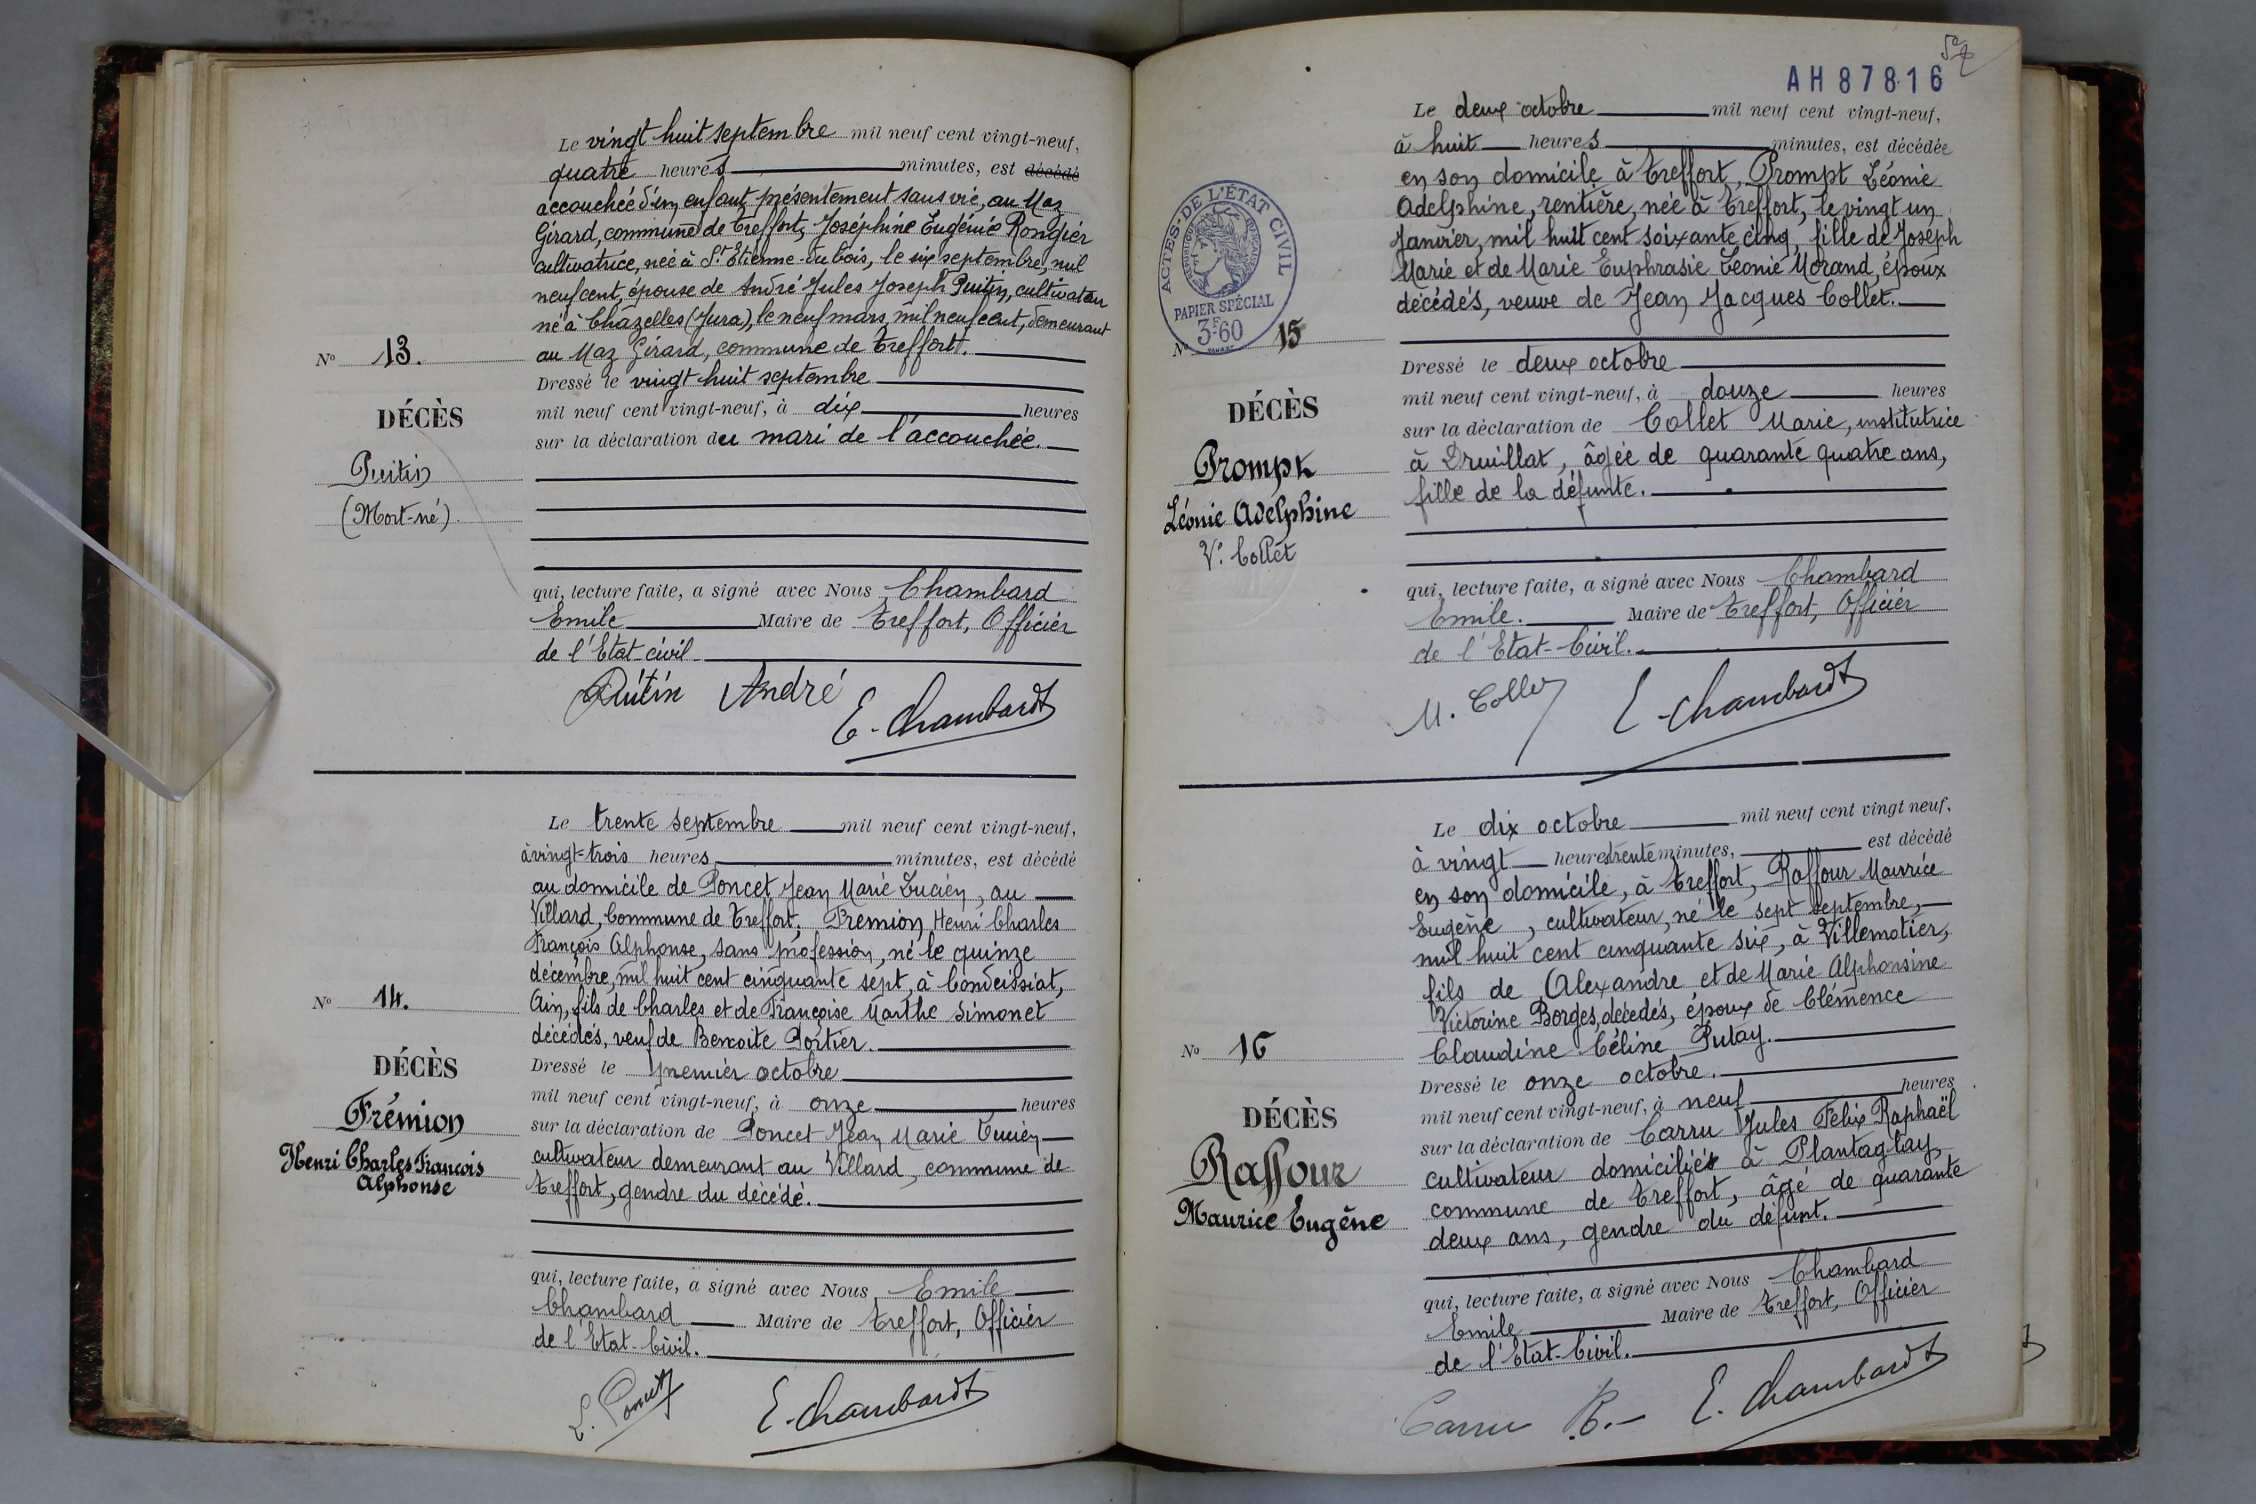 Le vingt huit septembre mil neuf cent vingt-neuf,
quatre heures minutes, est décédé
accouchée d'un enfant présentement sans vie, au Maz
Girard, commune de Treffort, Joséphine Eugénie Rongier
cultivatrice, née à St Etienne-du bois, le six septembre, mil
neuf cent, épouse de André Jules Joseph Puitin, cultivateur
né à Chazelles (Jura), le neuf mars, mil neuf cent, demeurant
au Maz Girard, commune de Treffort.
Nº 13.
Dressé le vingt huit septembre
mil neuf cent vingt-neuf, à dix heures
sur la déclaration du mari de l'accouchée.
DÉCÈS
Puitin
(Mort-né).
qui, lecture faite, a signé avec Nous Chambard
Emile Maire de Treffort, Officier
de l'Etat-civil
Puitin André
E. Chambard
Le trente septembre mil neuf cent vingt-neuf,
à vingt-trois heures minutes, est décédé
au domicile de Poncet Jean Marie Lucien, au
Villard, Commune de Treffort, Fremion Henri Charles
François Alphonse, sans profession, né le quinze
décembre, mil huit cent cinquante sept, à Condeissiat,
Ain, fils de Charles et de Françoise Marthe Simonet
décédés, veuf de Benoite Portier.
Nº 14.
Dressé le premier octobre
mil neuf cent vingt-neuf, à onze heures
sur la déclaration de Poncet Jean Marie Lucien
cultivateur demeurant au Villard, commune de
Treffort, gendre du décédé.
DÉCÈS
Frémion
Henri Charles François
Alphonse
qui, lecture faite, a signé avec Nous Emile
Chambard Maire de Treffort, Officier
de l'Etat-Civil.
L. Poncet
E. Chambard
AH87816
Le deux octobre mil neuf cent vingt-neuf,
à huit heures minutes, est décédée
en son domicile à Treffort, Prompt Léonie
Adelphine, rentière, née à Treffort, le vingt un
Janvier, mil huit cent soixante cinq, fille de Joseph
Marie et de Marie Euphrasie Leonie Morand, époux
décédés, veuve de Jean Jacques Collet.
ACTES DE L'ÉTAT CIVIL
PAPIER SPÉCIAL
3F60
Nº 15
Dressé le deux octobre
mil neuf cent vingt-neuf, à douze heures
sur la déclaration de Collet Marie, institutrice
à Druillat, âgée de quarante quatre ans,
fille de la défunte.
DÉCÈS
Prompt
Léonie Adelphine
Ve Collet
qui, lecture faite, a signé avec Nous Chambard
Emile. Maire de Treffort, Officier
de l'Etat-Civil.
M. Collet
E. Chambard
Le dix octobre mil neuf cent vingt neuf,
à vingt heures trente minutes, est décédé
en son domicile, à Treffort, Raffour Maurice
Eugène, cultivateur, né le sept septembre,
mil huit cent cinquante six, à Villemotier,
fils de Alexandre et de Marie Alphonsine
Victorine Borges, décédés, époux de Clémence
Claudine Céline Putay.
Nº 16
Dressé le onze octobre.
mil neuf cent vingt-neuf, à neuf heures
sur la déclaration de Carru Jules Felix Raphaël
cultivateur domicilié à Plantaglay
commune de Treffort, âgé de quarante
deux ans, gendre du défunt.
DÉCÈS
Raffour
Maurice Eugène
qui, lecture faite, a signé avec Nous Chambard
Emile Maire de Treffort, Officier
de l'Etat-Civil.
Carru R.
E. Chambard